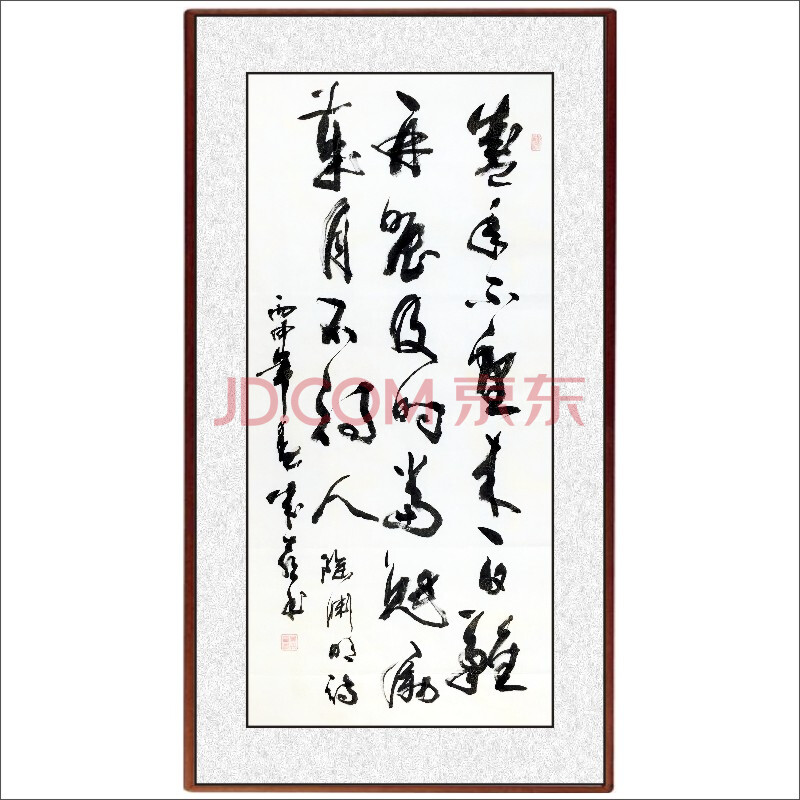 盛年不重来一日難
再晨及时當勉励
歲月不待人 陶渊明诗
丙申年春
JD.COM 京东